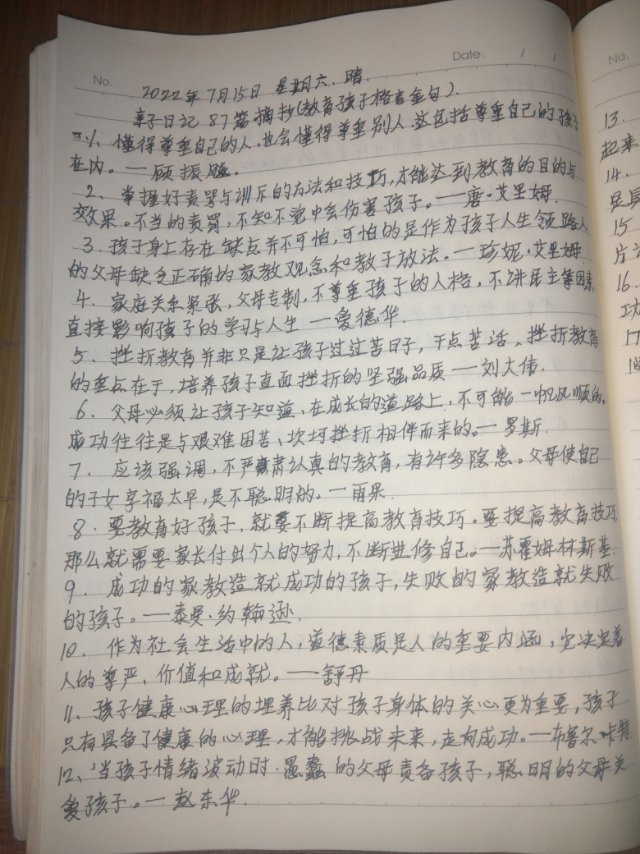 No.
Date: / /
2022年7月15日 星期六.晴.
亲子日记87篇摘抄(教育孩子格言金句).
1、懂得尊重自己的人,也会懂得尊重别人.这包括尊重自己的孩子
在内。—顾振飚.
2、掌握好责骂与训示的方法和技巧,才能达到教育的目的与
效果。不当的责骂,不知不觉中会伤害孩子。——唐·艾里姆.
3.孩子身上存在缺点并不可怕,可怕的是作为孩子人生领路人
的父母缺乏正确的家教观念和教子方法。—珍妮·艾里姆
4.家庭关系紧张,父母专制,不尊重孩子的人格,不讲民主等因素
直接影响孩子的学习与人生 —爱德华.
5.挫折教育并非只是让孩子过过苦日子,干点苦活、挫折教育
的重点在于,培养孩子直面挫折的坚强品质—刘大伟.
6.父母必须让孩子知道、在成长的道路上,不可能一帆风顺的。
成功往往是与艰难困苦、坎坷挫折相伴而来的。—罗斯.
7.应该强调,不严肃认真的教育,有许多隐患。父母使自己
的子女享福太早,是不聪明的。—雨果
8.要教育好孩子,就要不断提高教育技巧.要提高教育技巧
那么就需要家长付出个人的努力,不断进修自己。—苏霍姆林斯基
9.成功的家教造就成功的孩子,失败的家教造就失败
的孩子。——泰曼·约翰逊.
10.作为社会生活中的人,道德素质是人的重要内涵,它决定着
人的尊严、价值和成就。——舒丹
11、孩子健康心理的培养比对孩子身体的关心更为重要,孩子
只有具备了健康的心理,才能挑战未来,走向成功。—布鲁尔·卡特
12、当孩子情绪波动时.愚蠢的父母责备孩子,聪明的父母关
爱孩子。—赵东华.
No
13.
起来
14、
15
16.
功
17